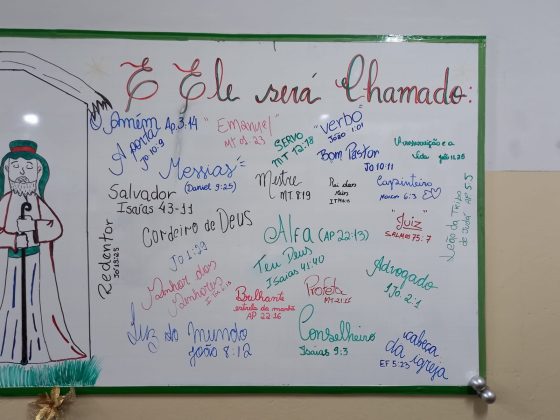 E Ele será Chamado:
O Amém Ap. 3.14
A porta
Jo 10.9
"Emanuel"
MT 01.23
SERVO
MT 12:18
"Verbo"
João 1.01
Bom Pastor
João 10:11
A ressurreição e a
vida João 11.25
Messias
(Daniel 9:25)
Mestre
MT 8:19
Rei dos
reis
Carpinteiro
Marcos 6:3
Leão da Tribo
de Judá AP 5.5
Salvador
Isaías 43-11
Redentor
Jó 19:25
Cordeiro de Deus
Jo 1:29
Alfa (AP 22:13)
"Juiz"
SALMOS 75:7
Teu Deus
Isaías 41:40
Advogado
1 Jo. 2:1
Senhor dos
Senhores
Brilhante
estrela da manhã
AP 22:16
Profeta
MT 21:11
Luz do mundo
João 8:12
Conselheiro
Isaías 9:3
cabeça
da
igreja
EF 5:23